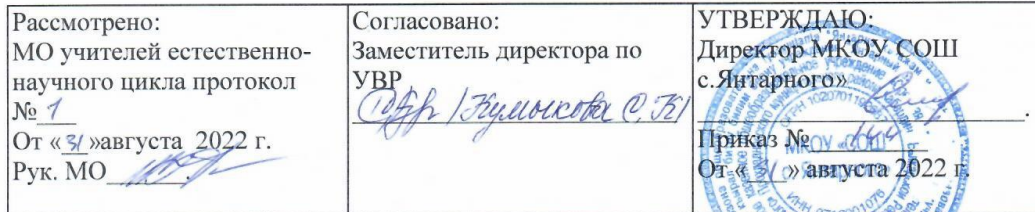 Рассмотрено:
МО учителей естественно-
научного цикла протокол
№ 1
От « 31 »августа 2022 г.
Рук. МО
Согласовано:
Заместитель директора по
УВР
/Кумыкова С.К/
УТВЕРЖДАЮ:
Директор МКОУ СОШ
с.Янтарного»
Приказ №
От « 31 » августа 2022 г.
МКОУ «СОШ
с. Янтарного»